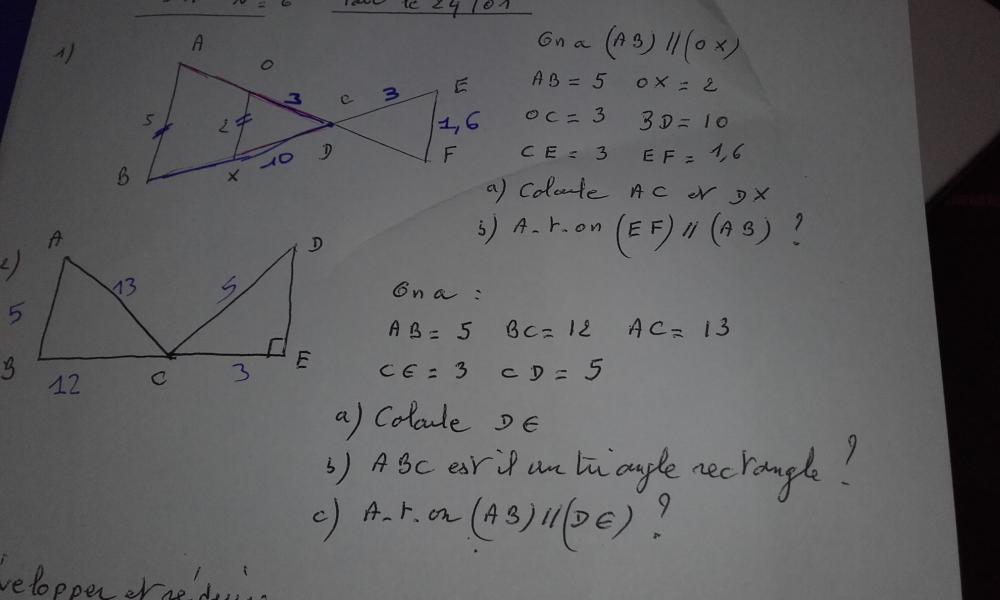 le 24/01
1)
A
O
3
C
3
E
5
2
1,6
10
D
F
B
X
On a (AB) // (OX)
AB = 5 OX = 2
OC = 3 BD = 10
CE = 3 EF = 1,6
a) Calcule AC et DX
b) A-t-on (EF) // (AB) ?
2)
A
D
13
5
5
B
12
C
3
E
On a :
AB = 5 BC = 12 AC = 13
CE = 3 CD = 5
a) Calcule DE
b) ABC est il un triangle rectangle ?
c) A-t-on (AB) // (DE) ?
velopper et rédui